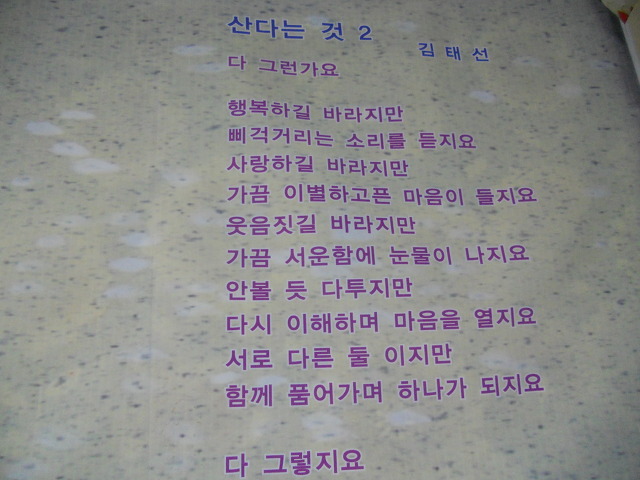 산다는 것 2
김 태 선
다 그런가요
행복하길 바라지만
삐걱거리는 소리를 듣지요
사랑하길 바라지만
가끔 이별하고픈 마음이 들지요
웃음짓길 바라지만
가끔 서운함에 눈물이 나지요
안볼 듯 다투지만
다시 이해하며 마음을 열지요
서로 다른 둘 이지만
함께 품어가며 하나가 되지요
다 그렇지요